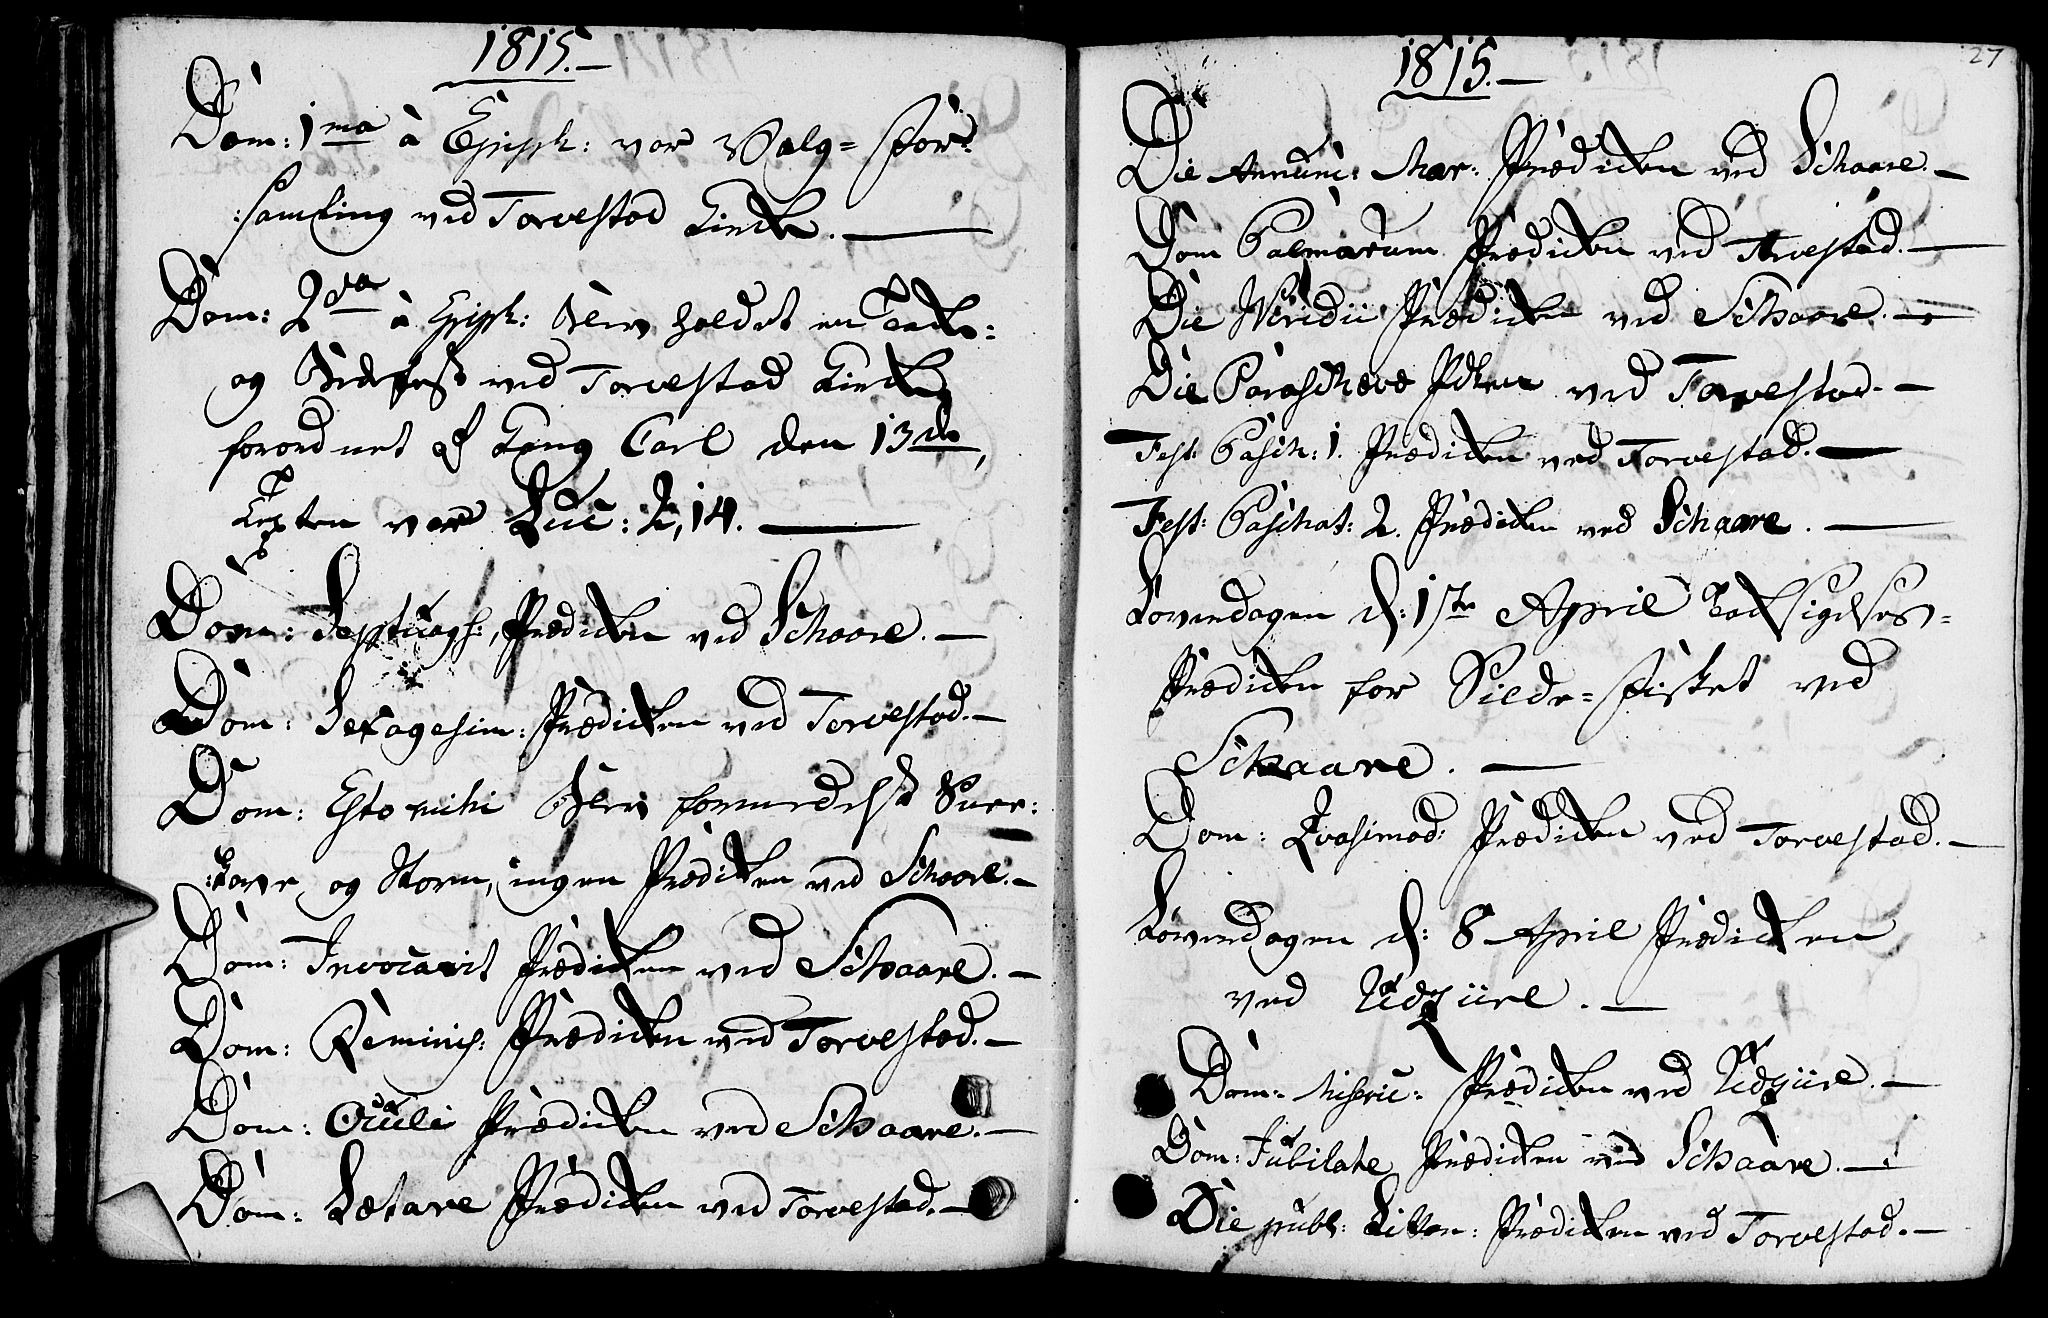 1815.—
Dom: 1ma à Epiph: var Valg=For=
:samling ved Torvestad Kirke.—
Dom: 2da à Epiph: blev holdet en Takke=
og Bedefest ved Torvestad Kirke,
forordnet af Kong Carl den 13de,
Texten var Luc: 2,14.—
Dom: Septuages:, Prædiken ved Schaare.—
Dom: Sexagesim: Prædiken ved Torvestad.—
Dom: Esto mihi blev formedelst Snee=
og Storm, ingen Prædiken ved Schaare.—
Dom: Invocavit Prædiken ved Schaare.—
Dom: Reminis: Prædiken ved Torvestad.—
Dom: Oculi Prædiken ved Schaare.—
Dom: Lætare Prædiken ved Torvestad.—
27
1815.—
Die Annunc: Mar: Prædiken ved Schaare.—
Dom Palmarum Prædiken ved Torvestad.—
Die Viridii Prædiken ved Schaare.—
Die Parasceve ved Torvestad.—
Fest: Pasch: 1. Prædiken ved Torvestad.—
Fest: Paschat: 2. Prædiken ved Schaare.—
Løverdagen d: 1ste April Taksigelses=
Prædiken for Silde=Fisket ved
Schaare.—
Dom: Qvasimod: Prædiken ved Torvestad.—
Løverdagen d: 8 April Prædiken
ved Udzüre.—
Dom: Miseric: Prædiken ved Udzüre.—
Dom: Jubilate Prædiken ved Schaare.—
Die publ: Litten: Prædiken ved Torvestad.—